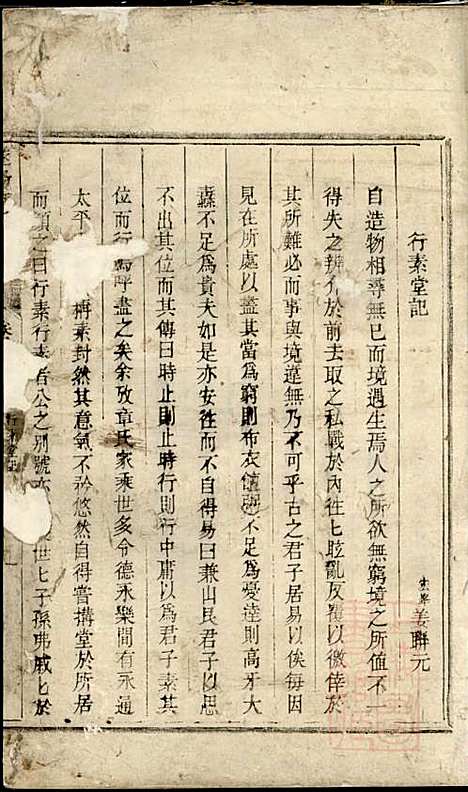 行素堂記
姜聯元
自造物相尋無已而境遇生焉人之所欲無窮境之所值不一
得失之辨介於前去取之私戰於內往七眩亂反覆以徼倖於
其所難必而事與境違無乃不可乎古之君子居易以俟每因
見在所處以盡其當為窮則布衣饘粥不足為憂達則高牙大
纛不足為貴夫如是亦安往而不自得易曰兼山艮君子以思
不出其位而其傳曰時止則止時行則行中庸以為君子素其
位而行嗚呼盡之矣余攷章氏家乘世多令德永樂間有永通
太平 精素封然其意氣不矜悠然自得嘗搆堂於所居
而顏之曰行素行素者公之別號 世七子孫弗戚七於